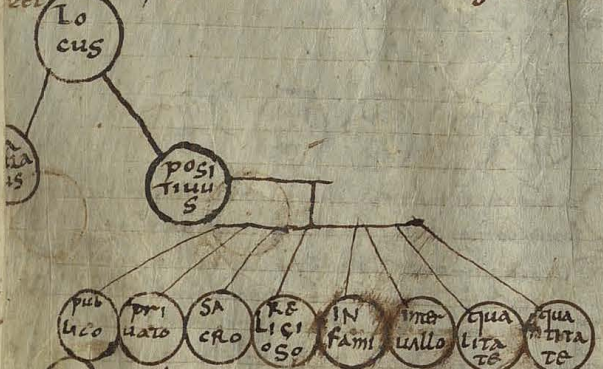 Lo
cus
posi
tiuu
s
pub
lico
pri
uato
SA
CRO
RE
LIGI
OSO
IN
fami
inter
uallo
qua
lita
te
qua
tita
te